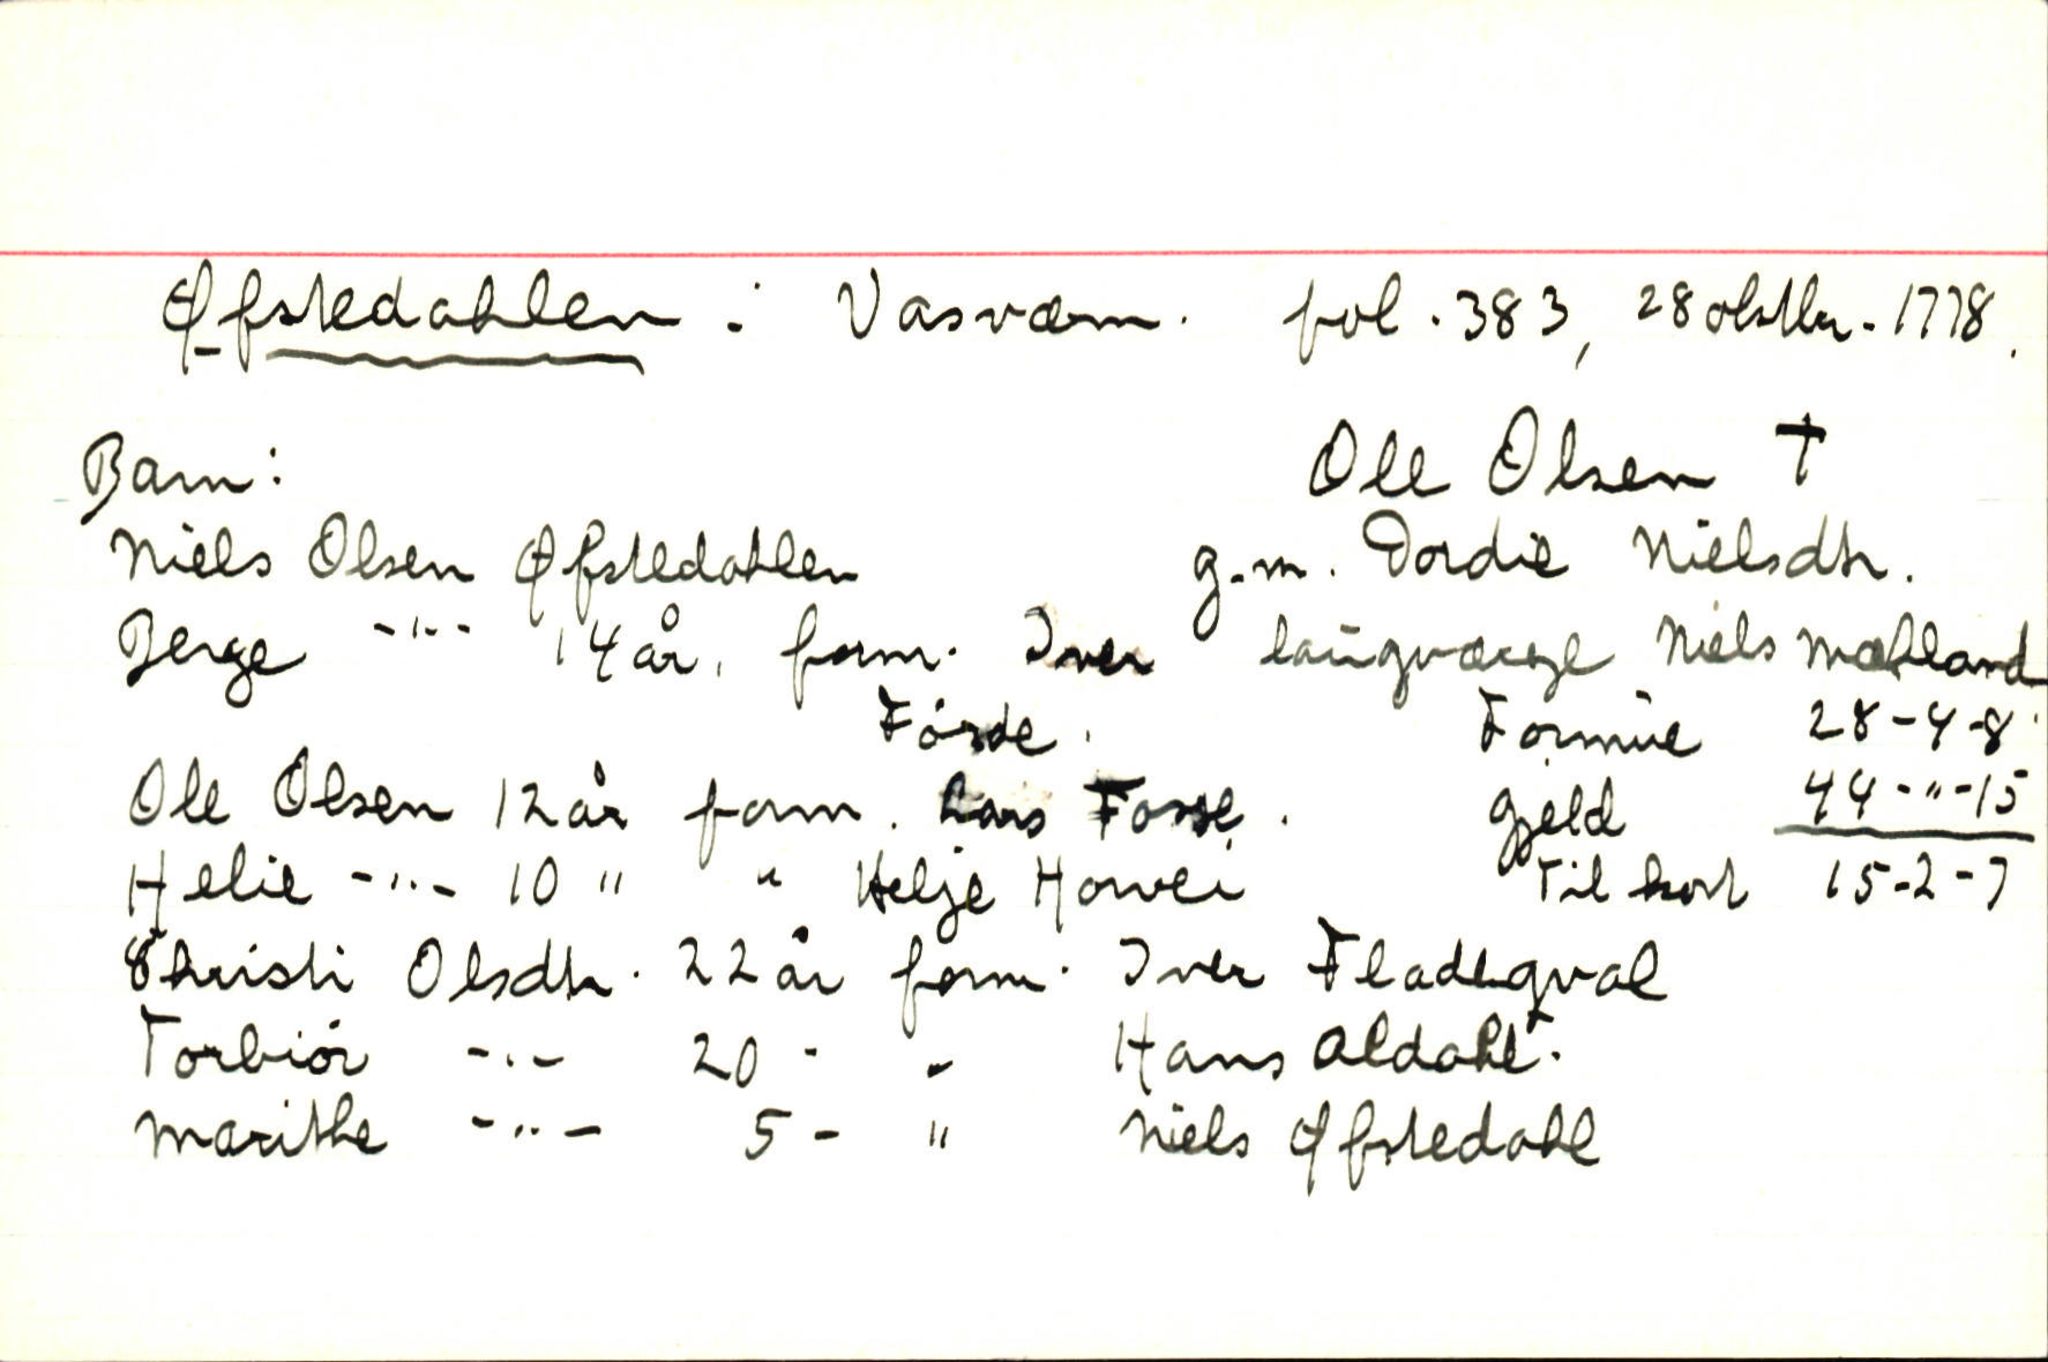 Øfstedahlen : Vasværn. fol. 383, 28 oktbr. 1778.
Ole Olsen †
Barn:
Niels Olsen Øfstedahlen g.m. Dordie Nielsdtr.
Berge -"- 14 år, form. Iver laugværge Niels Mæhland
Förde. Formue 28-4-8
Ole Olsen 12 år form. Lars Fosse. Gjeld 44-"-15
Helie -"- 10 " " Helje Hovei Til kort 15-2-7
Christi Olsdtr. 22 år form. Iver Fladeqval
Torbiör -"- 20 - " Hans Aldahl.
Marithe -"- 5 - " Niels Øfstedahl